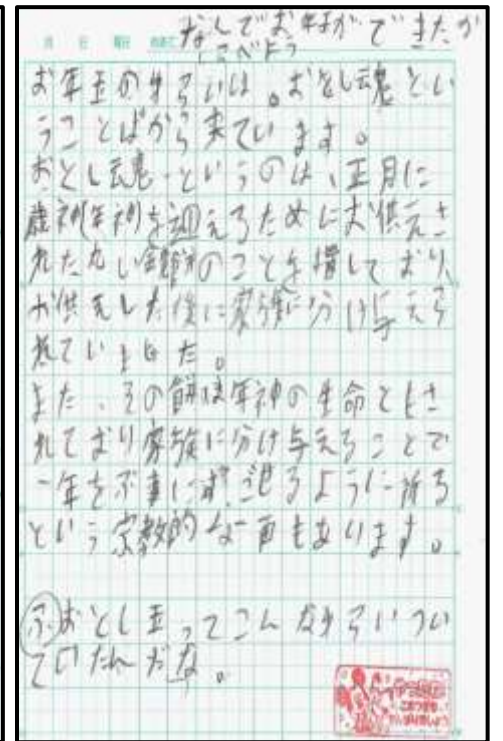 月 日 曜日 めあて なんでお年玉ができたか
しらべよう
お年玉の は。おとし魂とい
うことばから来ています。
おとし魂というのは、正月に
歳神(年神)を迎えるためにお供えさ
れた丸い鏡餅のことを指しており、
お供えした後に家族に分け与えら
れていました。
また、その餅は年神の生命ともさ
れており家族に分け与えることで
一年をぶ事にすごせるように祈る
という宗教的な一面もあります。
ふおとし玉ってこんな いつい
ていたんだな。